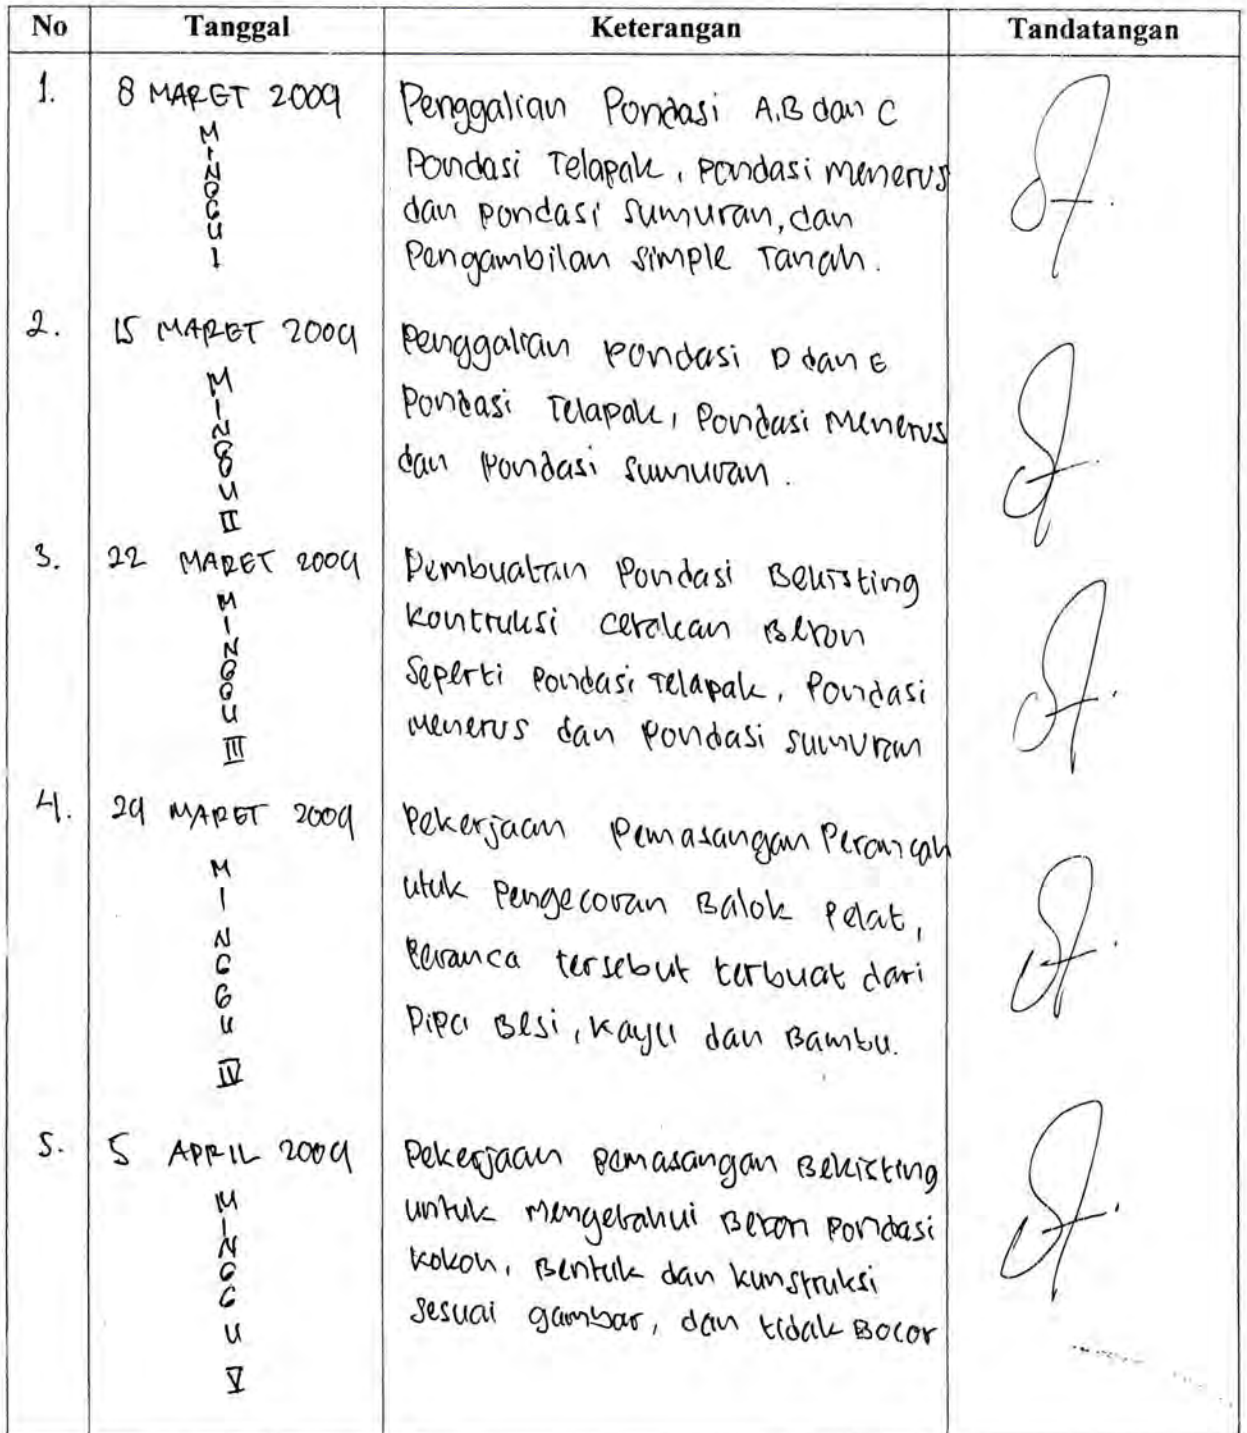 No Tanggal Keterangan Tandatangan
1. 8 MARET 2009 Penggalian Pondasi A.B dan C
MINGGU I
Pondasi Telapak, pondasi menerus
dan pondasi sumuran, dan
Pengambilan simple Tanah.
2. 15 MARET 2009 Penggalian pondasi D dan E
MINGGU II
Pondasi Telapak, Pondasi Menerus
dan pondasi sumuran.
3. 22 MARET 2009 Pembuatan Pondasi Bekisting
MINGGU III
kontruksi cetakan Beton
Seperti Pondasi Telapak, Pondasi
menerus dan Pondasi sumuran
4. 29 MARET 2009 Pekerjaan Pemasangan Perancah
MINGGU IV
utuk Pengecoran Balok Pelat,
Peranca tersebut terbuat dari
Pipa Besi, Kayu dan Bambu.
5. 5 APRIL 2009 Pekerjaan Pemasangan Bekisting
MINGGU V
untuk Mengetahui Beton Pondasi
kokoh, Bentuk dan kunstruksi
sesuai gambar, dan tidak Bocor